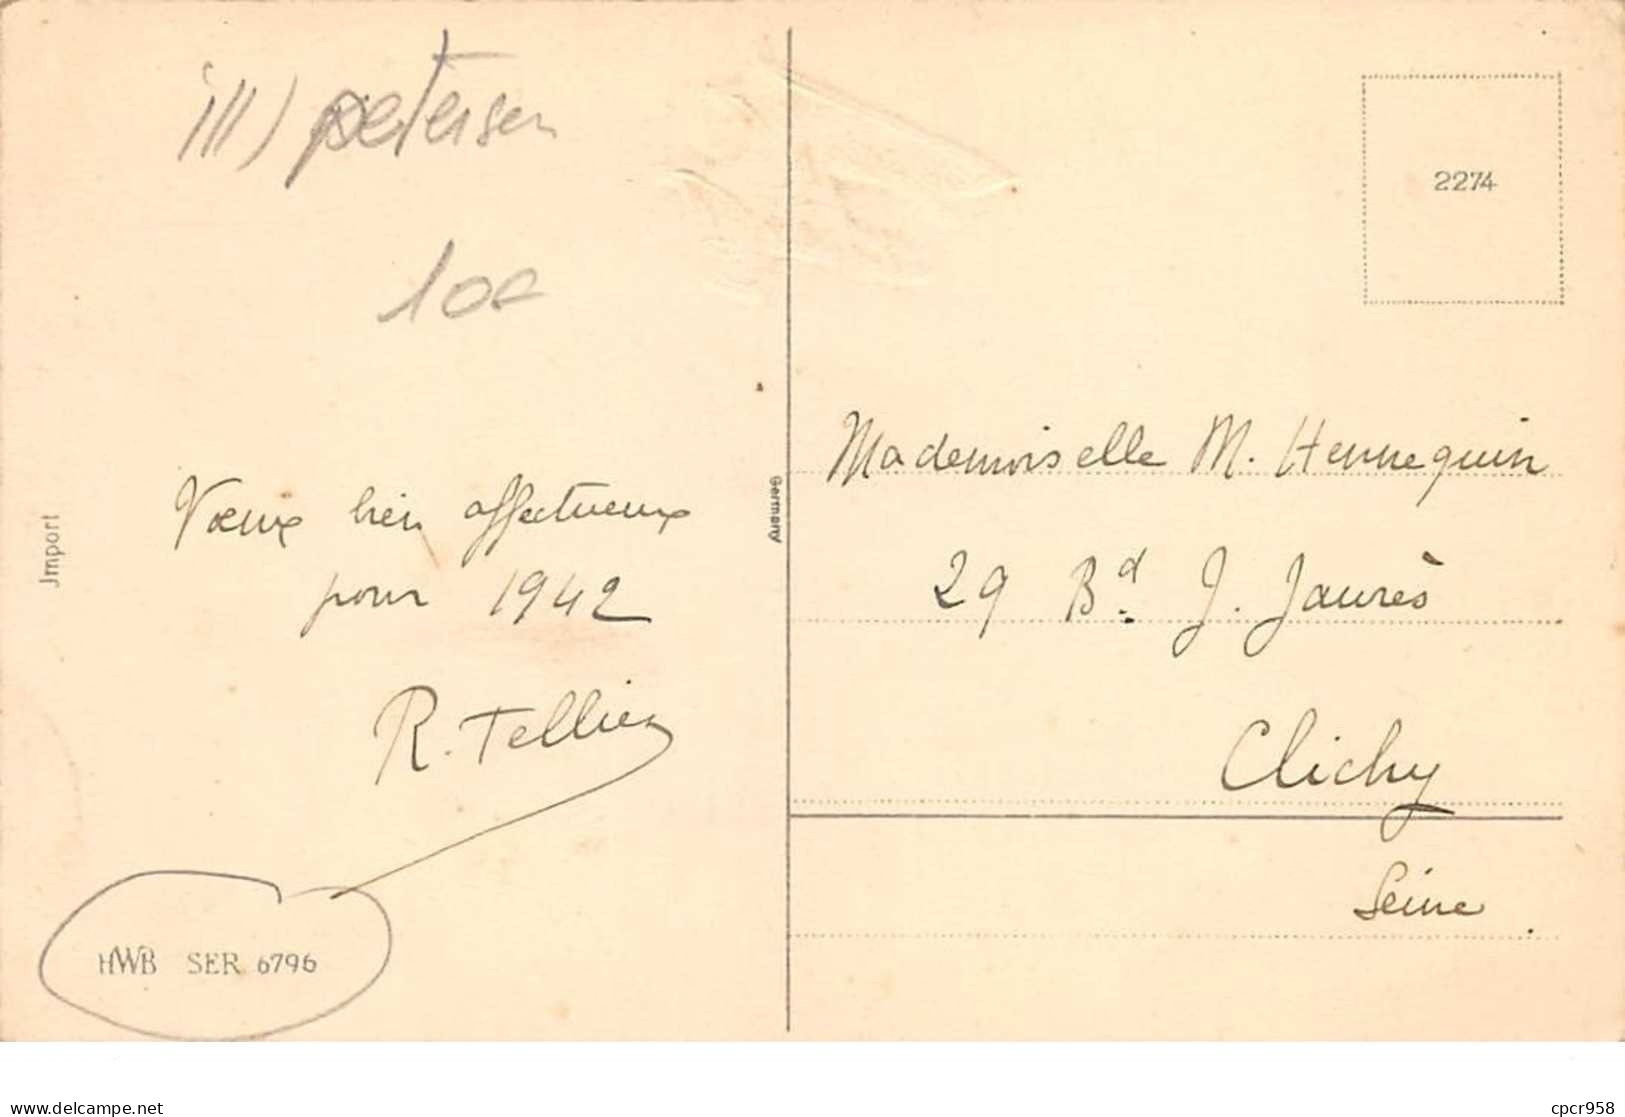 ill) petersen
10€
Vœux bien affectueux
pour 1942
R. Tellier
Jmport
HWB SER 6796
Germany
2274
Mademoiselle M. Hennequin
29 Bd. J. Jaurès
Clichy
Seine
delcampe.net
cpcr958